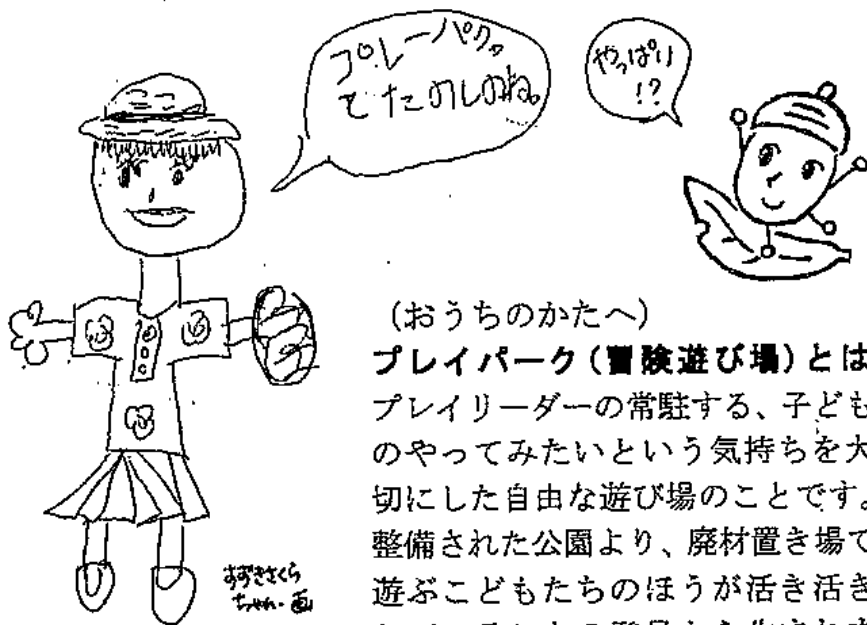 プレーパク。
てたのしのね。
やっぱり
!?
(おうちのかたへ)
プレイパーク(冒険遊び場)とは
プレイリーダーの常駐する、子ども
のやってみたいという気持ちを大
切にした自由な遊び場のことです。
整備された公園より、廃材置き場で
遊ぶこどもたちのほうが活き活き
すずきさくら
ちゃん・画